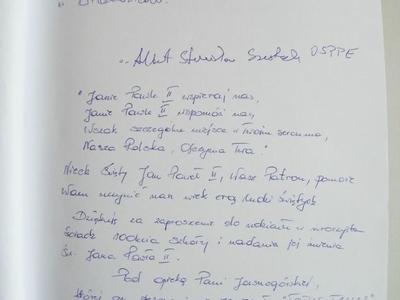 Albert Stanisław OSPPE
"Janie Pawle II wspieraj nas,
Janie Pawle II wspomóż nas,
Wszak szczególne miejsce w Twoim sercu ma,
Nasza Polska, Ojczyzna Twa"
Niech Święty Jan Paweł II, Wasz Patron, pomoże
Wam uczynić nasz wiek erą ludzi świętych
Dziękuję za zaproszenie do udziału w
szkoły i nadania jej imienia
Św. Jana Pawła II.
Pod opieką Pani Jasnogórskiej,